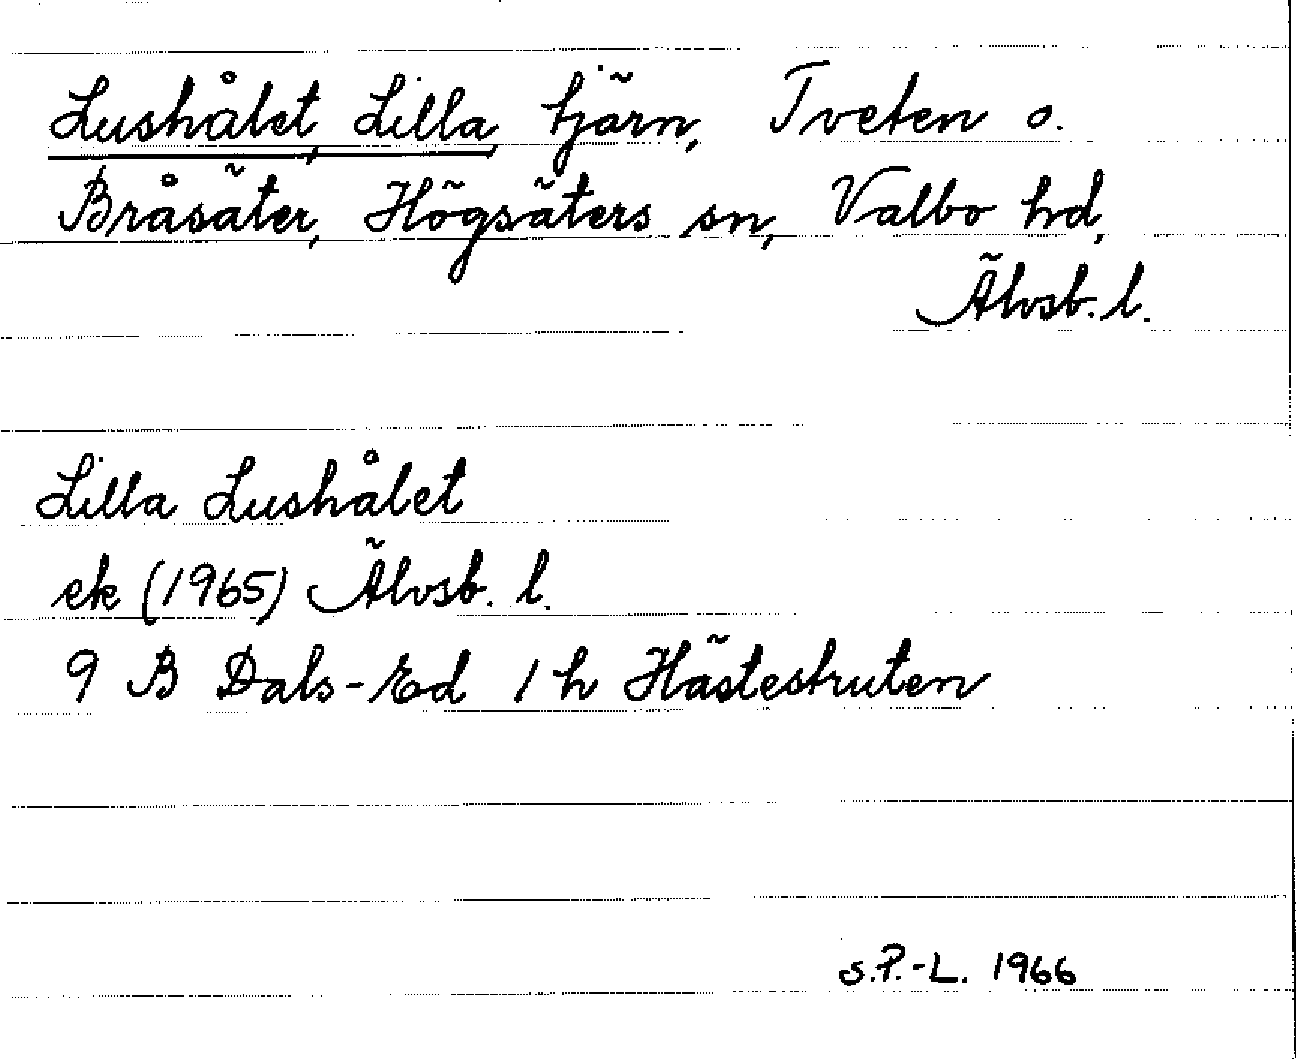 Lushålet, Lilla, tjärn, Tveten o.
Bråsäter, Högsäters sn, Valbo hd,
Älvsb. l.
Lilla Lushålet
ek (1965) Älvsb. l.
9 B Dals-Ed 1 h Hästeskruten
S.P.-L. 1966